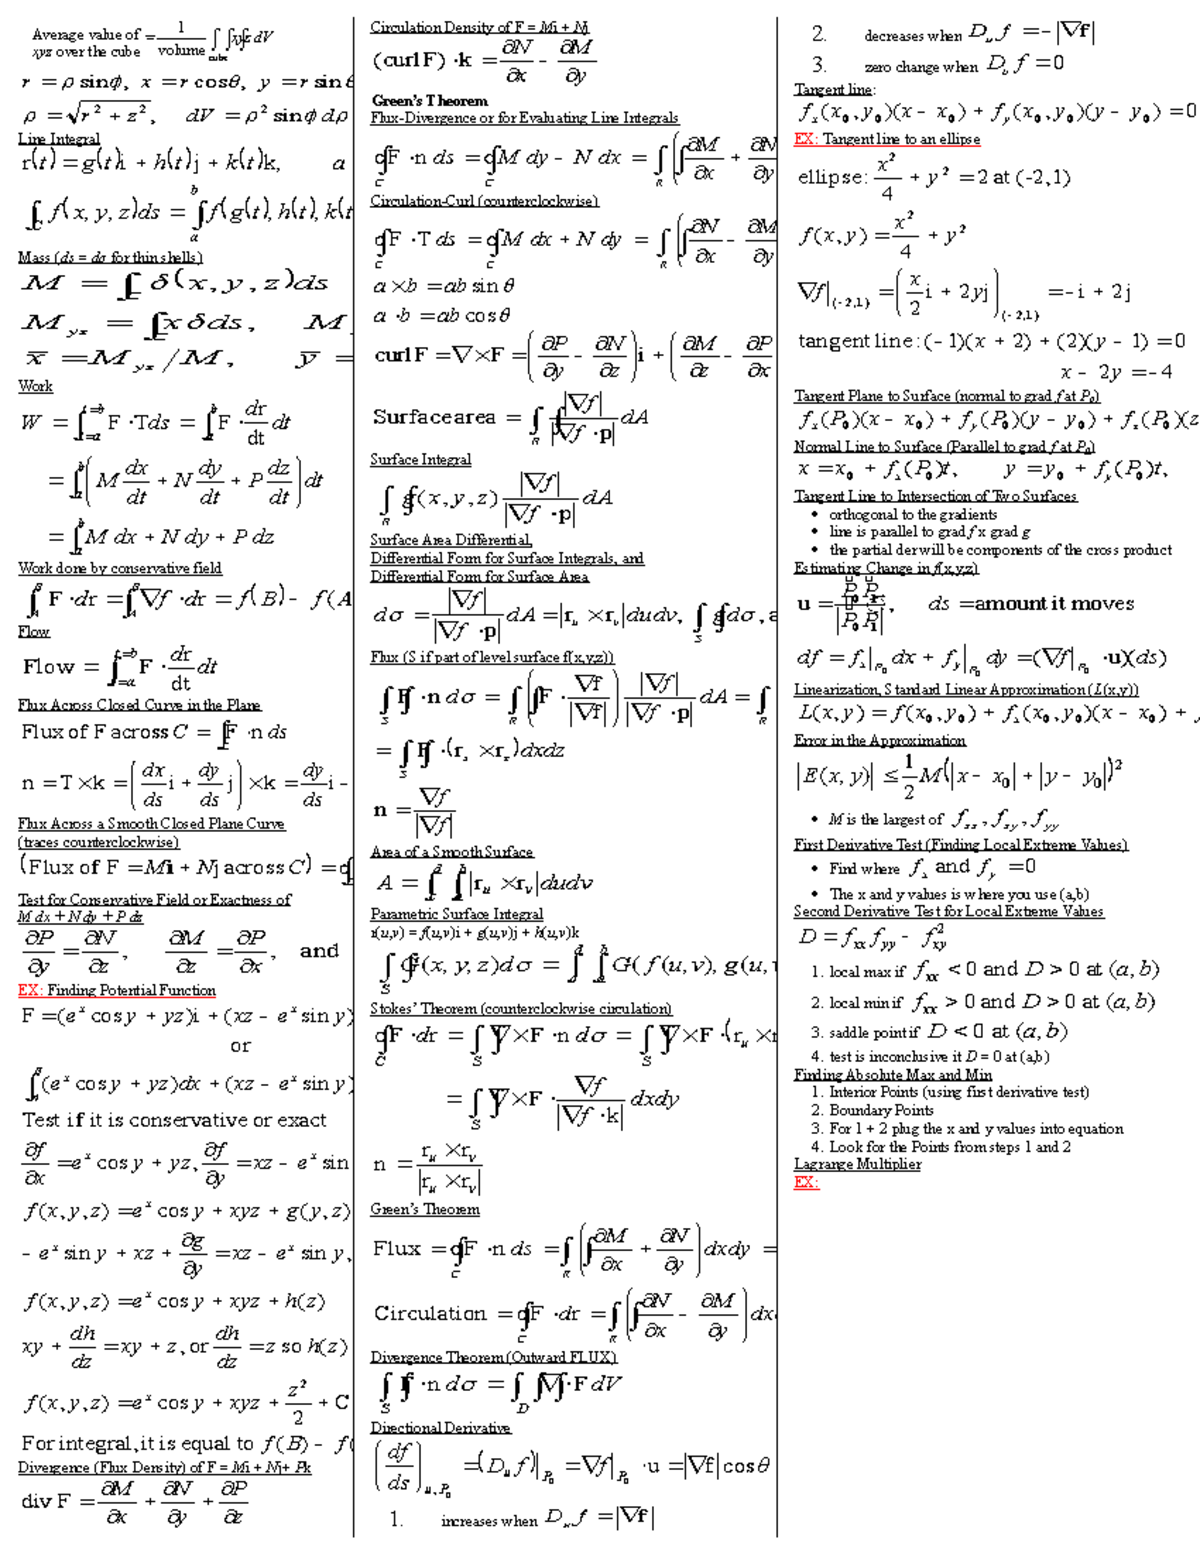 Average value of = 1/volume ∫∫∫ xyz dV
xyz over the cube cube
r = ρ sinϕ, x = r cosθ, y = r sin θ
ρ = √(r² + z²), dV = ρ² sin ϕ dρ
Line Integral
r(t) = g(t)i + h(t)j + k(t)k, a
∫_C f(x, y, z)ds = ∫_a^b f(g(t), h(t), k(t
Mass (ds = dσ for thin shells)
M = ∫_C δ(x, y, z)ds
M_yz = ∫_C x δ ds, M
x̄ = M_yz / M, ȳ =
Work
W = ∫_{t=a}^{t=b} F · T ds = ∫_a^b F · dr/dt dt
= ∫_a^b (M dx/dt + N dy/dt + P dz/dt) dt
= ∫_a^b M dx + N dy + P dz
Work done by conservative field
∫_A^B F · dr = ∫_A^B ∇f · dr = f(B) - f(A
Flow
Flow = ∫_{t=a}^{t=b} F · dr/dt dt
Flux Across Closed Curve in the Plane
Flux of F across C = ∫_C F · n ds
n = T × k = (dx/ds i + dy/ds j) × k = dy/ds i -
Flux Across a Smooth Closed Plane Curve
(traces counterclockwise)
(Flux of F = Mi + Nj across C) = ∮
Test for Conservative Field or Exactness of
M dx + N dy + P dz
∂P/∂y = ∂N/∂z, ∂M/∂z = ∂P/∂x, and
EX: Finding Potential Function
F = (e^x cos y + yz)i + (xz - e^x sin y)
or
∫_A^B (e^x cos y + yz)dx + (xz - e^x sin y)
Test if it is conservative or exact
∂f/∂x = e^x cos y + yz, ∂f/∂y = xz - e^x sin
f(x, y, z) = e^x cos y + xyz + g(y, z)
- e^x sin y + xz + ∂g/∂y = xz - e^x sin y,
f(x, y, z) = e^x cos y + xyz + h(z)
xy + dh/dz = xy + z, or dh/dz = z so h(z)
f(x, y, z) = e^x cos y + xyz + z²/2 + C
For integral, it is equal to f(B) - f(
Divergence (Flux Density) of F = Mi + Nj + Pk
div F = ∂M/∂x + ∂N/∂y + ∂P/∂z
Circulation Density of F = Mi + Nj
(curl F) · k = ∂N/∂x - ∂M/∂y
Green's Theorem
Flux-Divergence or for Evaluating Line Integrals
∮_C F · n ds = ∮_C M dy - N dx = ∫∫_R (∂M/∂x + ∂N/∂y
Circulation-Curl (counterclockwise)
∮_C F · T ds = ∮_C M dx + N dy = ∫∫_R (∂N/∂x - ∂M/∂y
a × b = ab sin θ
a · b = ab cos θ
curl F = ∇ × F = (∂P/∂y - ∂N/∂z)i + (∂M/∂z - ∂P/∂x
Surface area = ∫∫_R |∇f|/|∇f · p| dA
Surface Integral
∫∫_R g(x, y, z) |∇f|/|∇f · p| dA
Surface Area Differential,
Differential Form for Surface Integrals, and
Differential Form for Surface Area
dσ = |∇f|/|∇f · p| dA = |r_u × r_v| dudv, ∫∫_S g dσ, a
Flux (S if part of level surface f(x,y,z))
∫∫_S F · n dσ = ∫∫_R (F · ∇f/|∇f|) |∇f|/|∇f · p| dA = ∫_R
= ∫∫_S F · (r_x × r_z)dxdz
n = ∇f/|∇f|
Area of a Smooth Surface
A = ∫_c^d ∫_a^b |r_u × r_v| dudv
Parametric Surface Integral
r(u,v) = f(u,v)i + g(u,v)j + h(u,v)k
∫∫_S G(x, y, z)dσ = ∫_c^d ∫_a^b G(f(u, v), g(u, v
Stokes' Theorem (counterclockwise circulation)
∮_C F · dr = ∫∫_S ∇ × F · n dσ = ∫∫_S ∇ × F · (r_u × r
= ∫∫_S ∇ × F · ∇f/|∇f · k| dxdy
n = r_u × r_v/|r_u × r_v|
Green's Theorem
Flux = ∮_C F · n ds = ∫∫_R (∂M/∂x + ∂N/∂y) dxdy =
Circulation = ∮_C F · dr = ∫∫_R (∂N/∂x - ∂M/∂y) dx
Divergence Theorem (Outward FLUX)
∫∫_S F · n dσ = ∫∫∫_D ∇ · F dV
Directional Derivative
(df/ds)_{u,P₀} = (D_u f)|_{P₀} = ∇f|_{P₀} · u = |∇f| cos θ
1. increases when D_u f = |∇f|
2. decreases when D_u f = -|∇f|
3. zero change when D_u f = 0
Tangent line:
f_x(x₀, y₀)(x - x₀) + f_y(x₀, y₀)(y - y₀) = 0
EX: Tangent line to an ellipse
ellipse: x²/4 + y² = 2 at (-2,1)
f(x, y) = x²/4 + y²
∇f|_(-2,1) = (x/2 i + 2yj)_(-2,1) = -i + 2j
tangent line: (-1)(x + 2) + (2)(y - 1) = 0
x - 2y = -4
Tangent Plane to Surface (normal to grad f at P₀)
f_x(P₀)(x - x₀) + f_y(P₀)(y - y₀) + f_z(P₀)(z
Normal Line to Surface (Parallel to grad f at P₀)
x = x₀ + f_x(P₀)t, y = y₀ + f_y(P₀)t,
Tangent Line to Intersection of Two Surfaces
• orthogonal to the gradients
• line is parallel to grad f x grad g
• the partial der will be components of the cross product
Estimating Change in f(x,y,z)
u = P₀P₁/|P₀P₁|, ds = amount it moves
df = f_x|_{P₀} dx + f_y|_{P₀} dy = (∇f|_{P₀} · u)(ds)
Linearization, Standard Linear Approximation (L(x,y))
L(x, y) = f(x₀, y₀) + f_x(x₀, y₀)(x - x₀) +
Error in the Approximation
|E(x, y)| ≤ 1/2 M(|x - x₀| + |y - y₀|)²
• M is the largest of f_xx, f_xy, f_yy
First Derivative Test (Finding Local Extreme Values)
• Find where f_x and f_y = 0
• The x and y values is where you use (a,b)
Second Derivative Test for Local Extreme Values
D = f_xx f_yy - f_xy²
1. local max if f_xx < 0 and D > 0 at (a, b)
2. local min if f_xx > 0 and D > 0 at (a, b)
3. saddle point if D < 0 at (a, b)
4. test is inconclusive it D = 0 at (a,b)
Finding Absolute Max and Min
1. Interior Points (using first derivative test)
2. Boundary Points
3. For 1 + 2 plug the x and y values into equation
4. Look for the Points from steps 1 and 2
Lagrange Multiplier
EX: